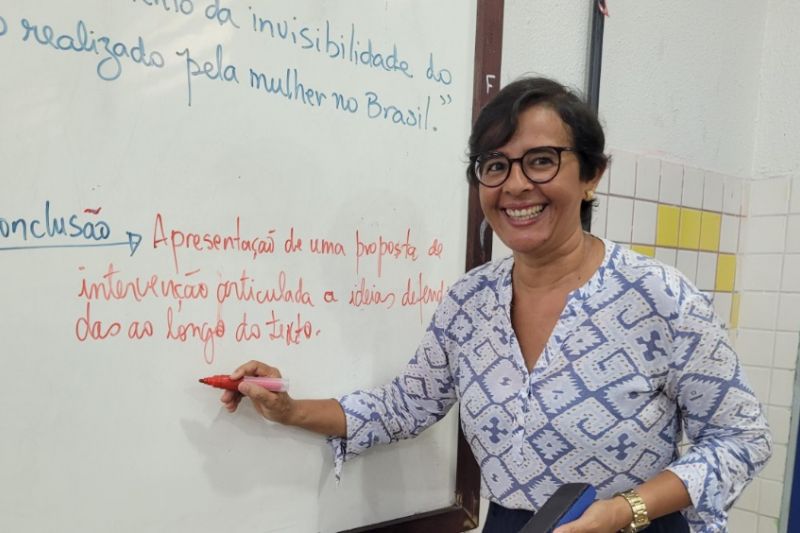 da invisibilidade do
realizado pela mulher no Brasil."
onclusão → Apresentação de uma proposta de
intervenção articulada a ideias defendi
das ao longo do texto.
F